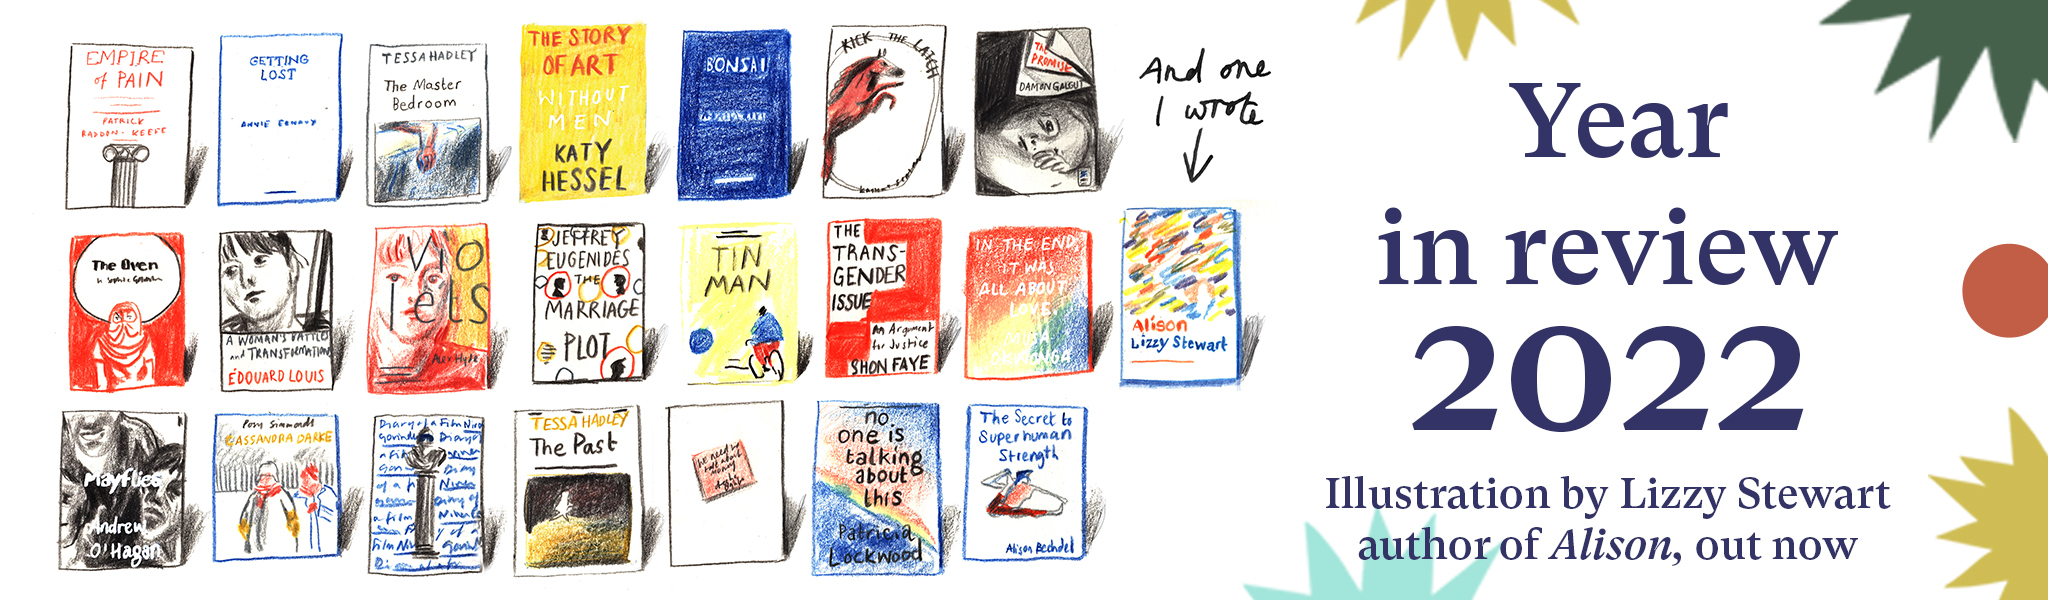 EMPIRE
of PAIN
PATRICK
RADDON-KEEFE
GETTING
LOST
ANNIE ERNAUX
TESSA HADLEY
The Master
Bedroom
THE STORY
OF ART
WITHOUT
MEN
KATY
HESSEL
BONSAI
KICK THE LATCH
THE
PROMISE
DAMON GALGUT
And one
I wrote
The Oven
A WOMAN'S BATTLES
and TRANSFORMATIONS
ÉDOUARD LOUIS
Vio
lets
Alex Hyde
JEFFREY
EUGENIDES
THE
MARRIAGE
PLOT
TIN
MAN
THE
TRANS-
GENDER
ISSUE
An Argument
for Justice
SHON FAYE
IN THE END,
IT WAS
ALL ABOUT
LOVE
MUSA
OKWONGA
Alison
Lizzy Stewart
Mayflies
Andrew
O'Hagan
Posy Simmonds
CASSANDRA DARKE
Diary of a Film Nira
Govinden Diary of
TESSA HADLEY
The Past
we need to
talk about
money
no
one is
talking
about
this
Patricia
Lockwood
The Secret to
Superhuman
Strength
Alison Bechdel
Year
in review
2022
Illustration by Lizzy Stewart
author of Alison, out now